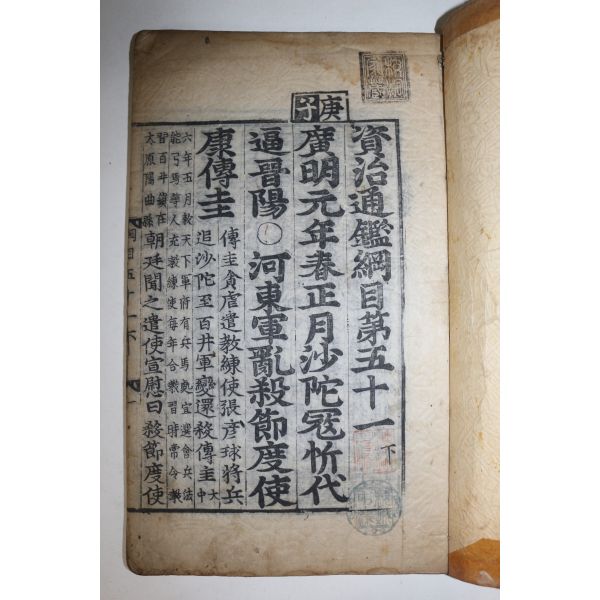 庚子
資治通鑑綱目第五十一 下
廣明元年春正月沙陀寇忻代
逼晉陽〇河東軍亂殺節度使
康傳圭
傳圭貪虐遣教練使張彦球將兵
追沙陀至百井軍變還殺傳圭
大中
六年五月敕天下軍府有兵馬處宜選會兵法
能弓馬等人充教練使每年合教習時常令教
習百井鎮在
太原陽曲縣
朝廷聞之遣使宣慰曰殺節度使